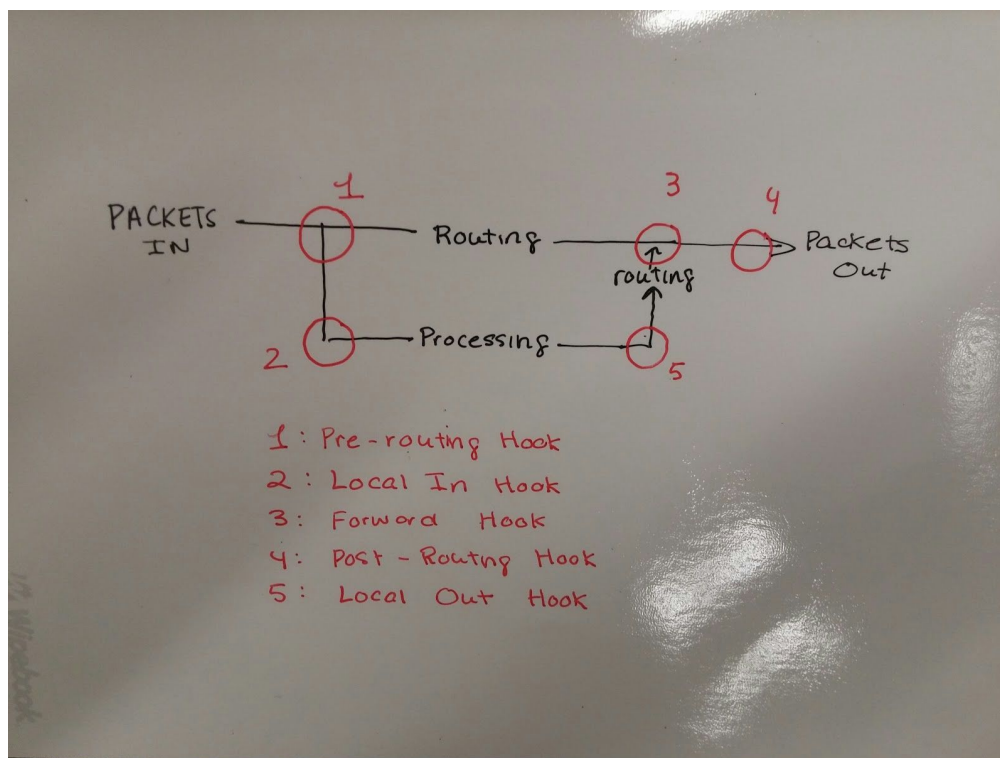 1
3
4
PACKETS
IN
Routing
Packets
Out
routing
2
Processing
5
1: Pre-routing Hook
2: Local In Hook
3: Forward Hook
4: Post-Routng Hook
5: Local Out Hook